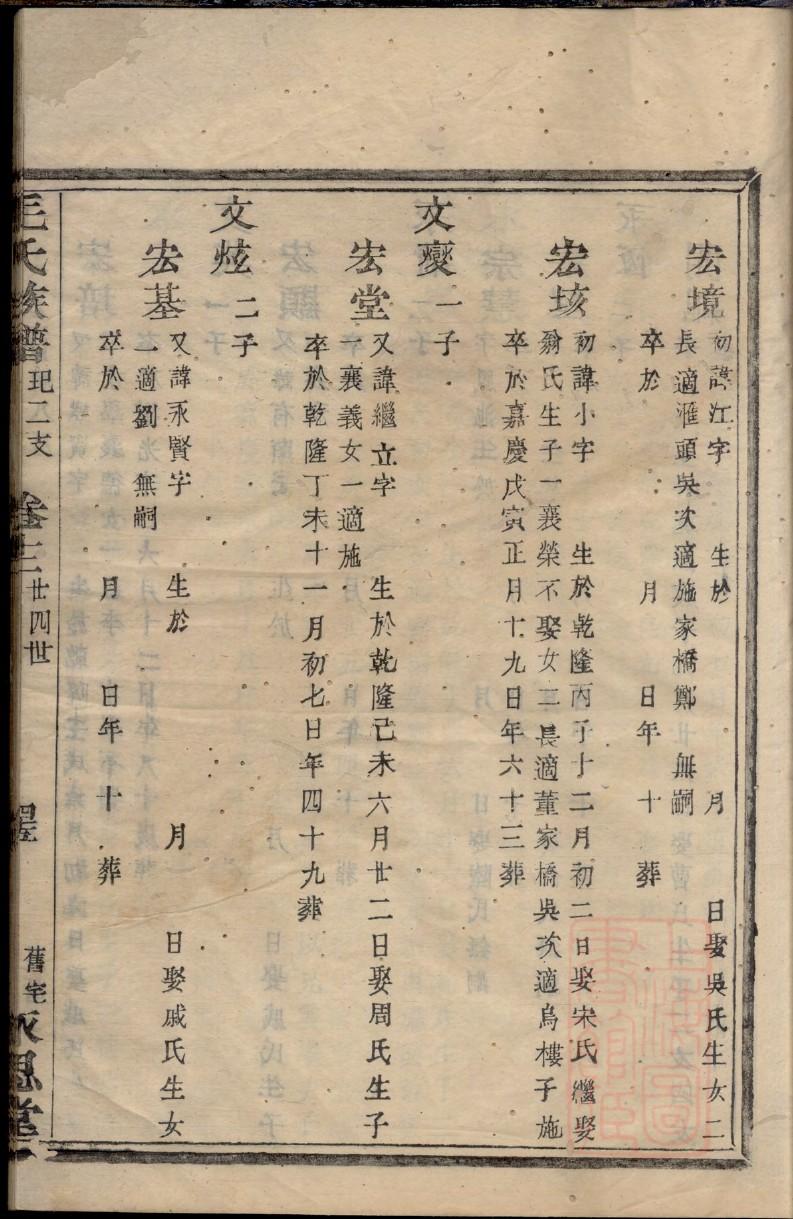 宏境
初諱江字　生於　月　日娶吳氏生女二
長適滙頭吳次適施家橋鄭　無嗣
卒於　月　日年　十　葬
宏垓
初諱小字　生於乾隆丙子十二月初二日娶宋氏繼娶
翁氏生子一襄榮不娶女二長適董家橋吳次適烏樓子施
卒於嘉慶戊寅正月十九日年六十三葬
文夔一子
宏堂
又諱繼立字　生於乾隆己未六月廿二日娶周氏生子
一襄義女一適施
卒於乾隆丁未十一月初七日年四十九葬
文炫二子
宏基
又諱永賢字　生於　月　日娶戚氏生女
一適劉　無嗣
卒於　月　日年　十　葬
毛氏族譜　玘二支　卷十二　廿四世　舊宅　永思堂